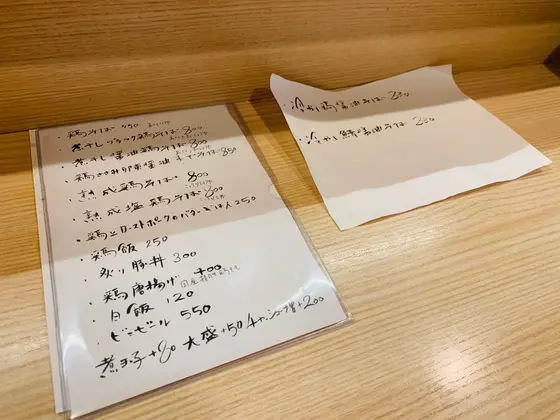 ・鶏そば 750
・煮干しブラック鶏そば 800
・煮干し醤油鶏そば 800
・鶏ささみ卵黄醤油
・熟成鶏そば 800
・熟成塩鶏そば 800
・鶏とローストポークのバターごはん 250
・鶏飯 250
・炙り豚丼 300
・鶏唐揚げ 400
・白飯 120
・ビンビール 550
煮玉子+80 大盛+50 チャーシュー増+200
・冷やし鶏醤油そば
・冷やし鯖醤油そば